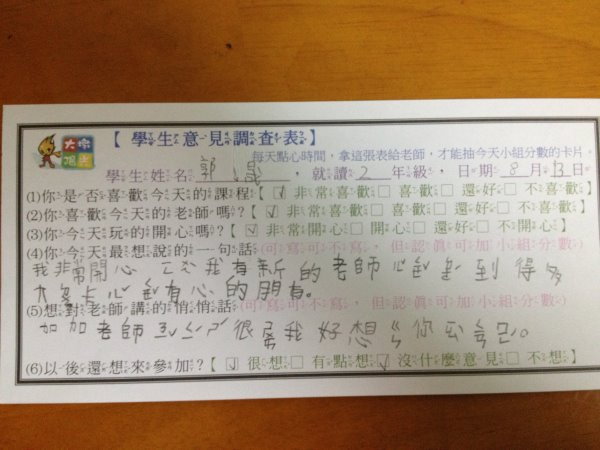 【學生意見調查表】
每天點心時間，拿這張表給老師，才能抽今天小組分數的卡片。
學生姓名 郭，就讀 2 年級，日期 8 月 13 日
(1)你是否喜歡今天的課程【☑非常喜歡□喜歡□還好□不喜歡】
(2)你喜歡今天的老師嗎?【☑非常喜歡□喜歡□還好□不喜歡】
(3)你今天玩的開心嗎?【☑非常開心□開心□還好□不開心】
(4)你今天最想說的一句話(可寫可不寫，但認真可加小組分數)
我非常開心 我有新的老師 到得
有心的朋友。
(5)想對老師講的悄悄話(可寫可不寫，但認真可加小組分數)
加加老師 很 我好想 你
(6)以後還想來參加?【☑很想□有點想☑沒什麼意見□不想】